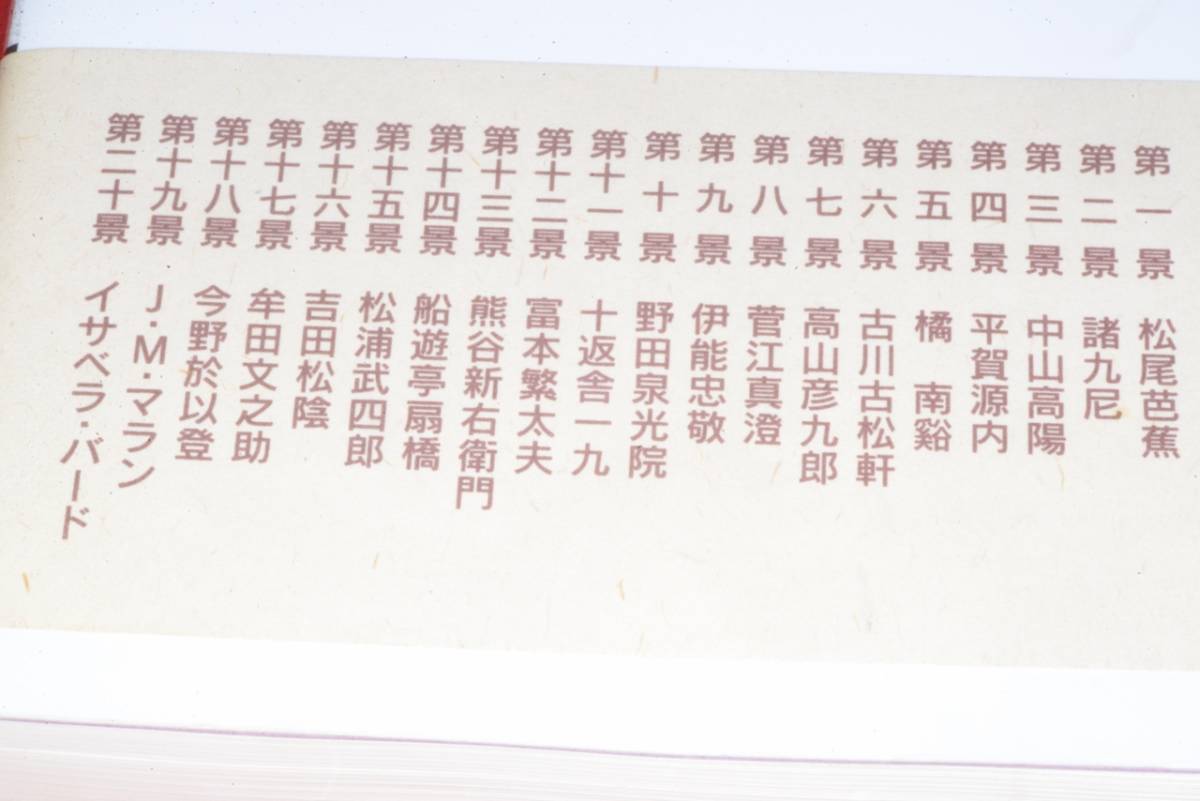 第一景 松尾芭蕉
第二景 諸九尼
第三景 中山高陽
第四景 平賀源内
第五景 橘 南谿
第六景 古川古松軒
第七景 高山彦九郎
第八景 菅江真澄
第九景 伊能忠敬
第十景 野田泉光院
第十一景 十返舎一九
第十二景 富本繁太夫
第十三景 熊谷新右衛門
第十四景 船遊亭扇橋
第十五景 松浦武四郎
第十六景 吉田松陰
第十七景 牟田文之助
第十八景 今野於以登
第十九景 J・M・マラン
第二十景 イサベラ・バード